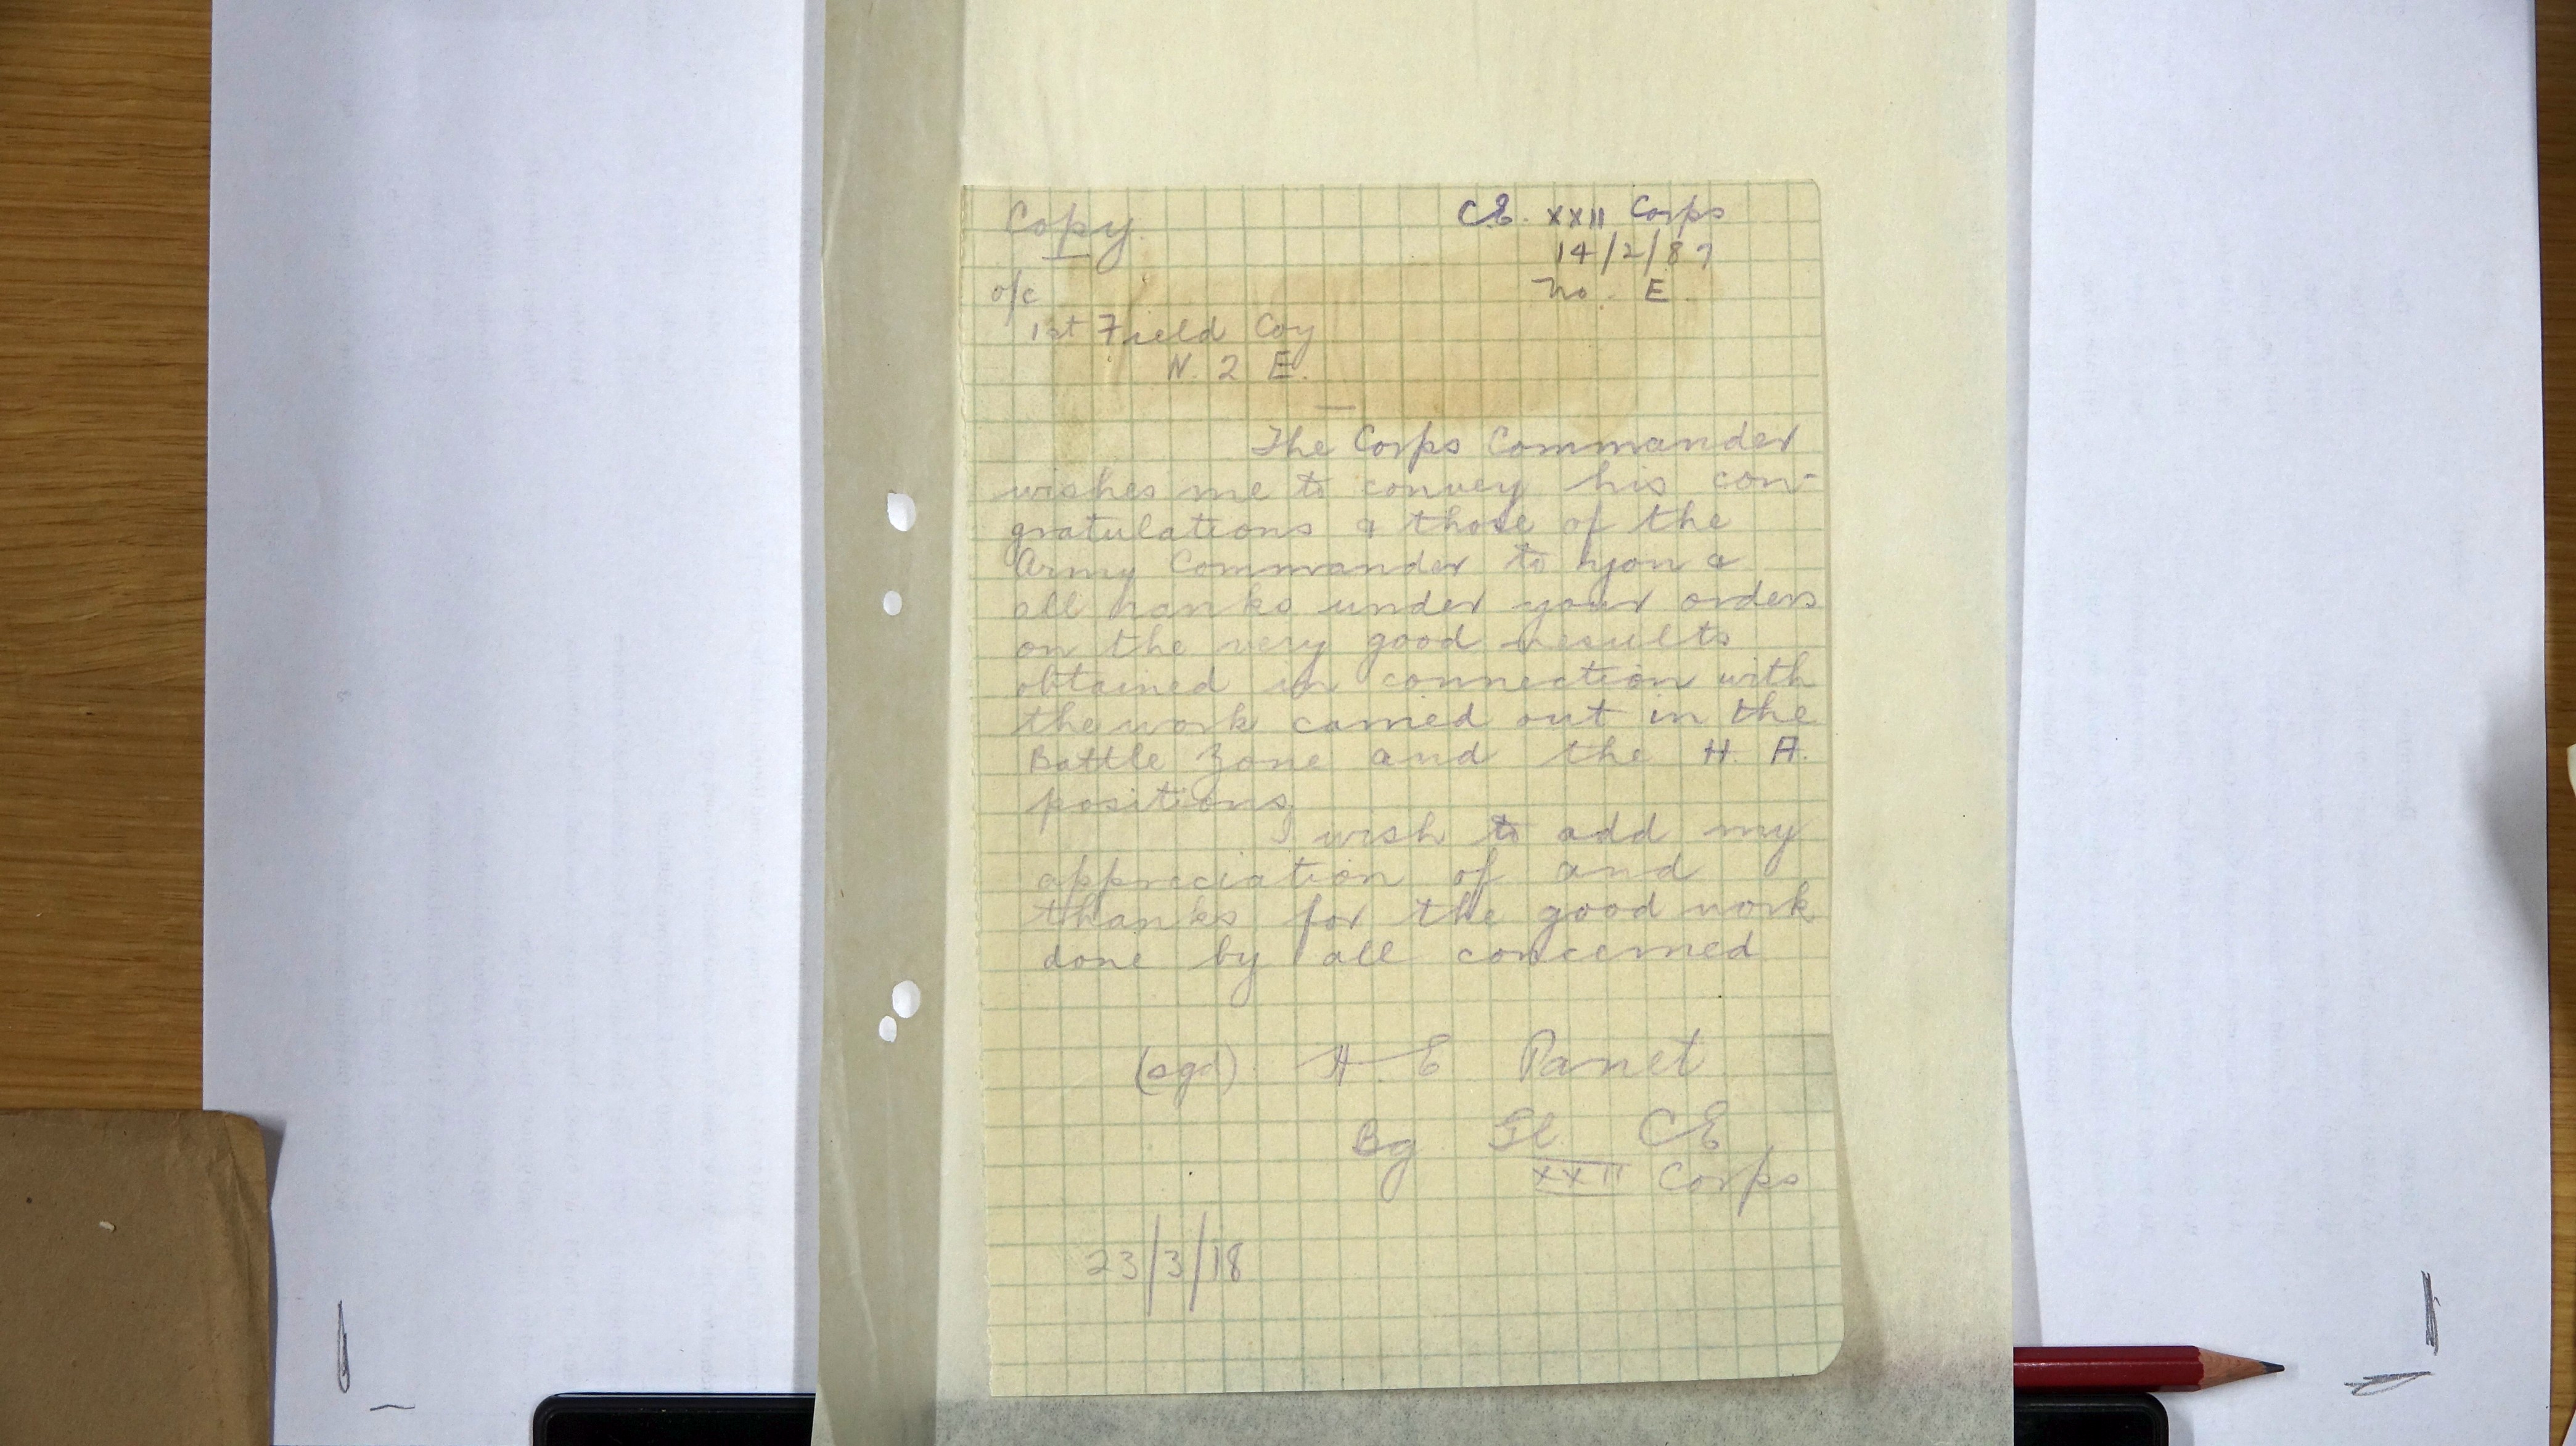 Copy
C.E. XXII Corps
14/2/87
No. E.
o/c
1st Field Coy
N. Z E.
The Corps Commander
wishes me to convey his con-
gratulations & those of the
Army Commander to you &
all ranks under your orders
on the very good results
obtained in connection with
the work carried out in the
Battle Zone and the H. A.
positions
I wish to add my
appreciation of and
thanks for the good work
done by all concerned
(sgd) H. E Panet
Bg Gl CE
XXII Corps
23/3/18